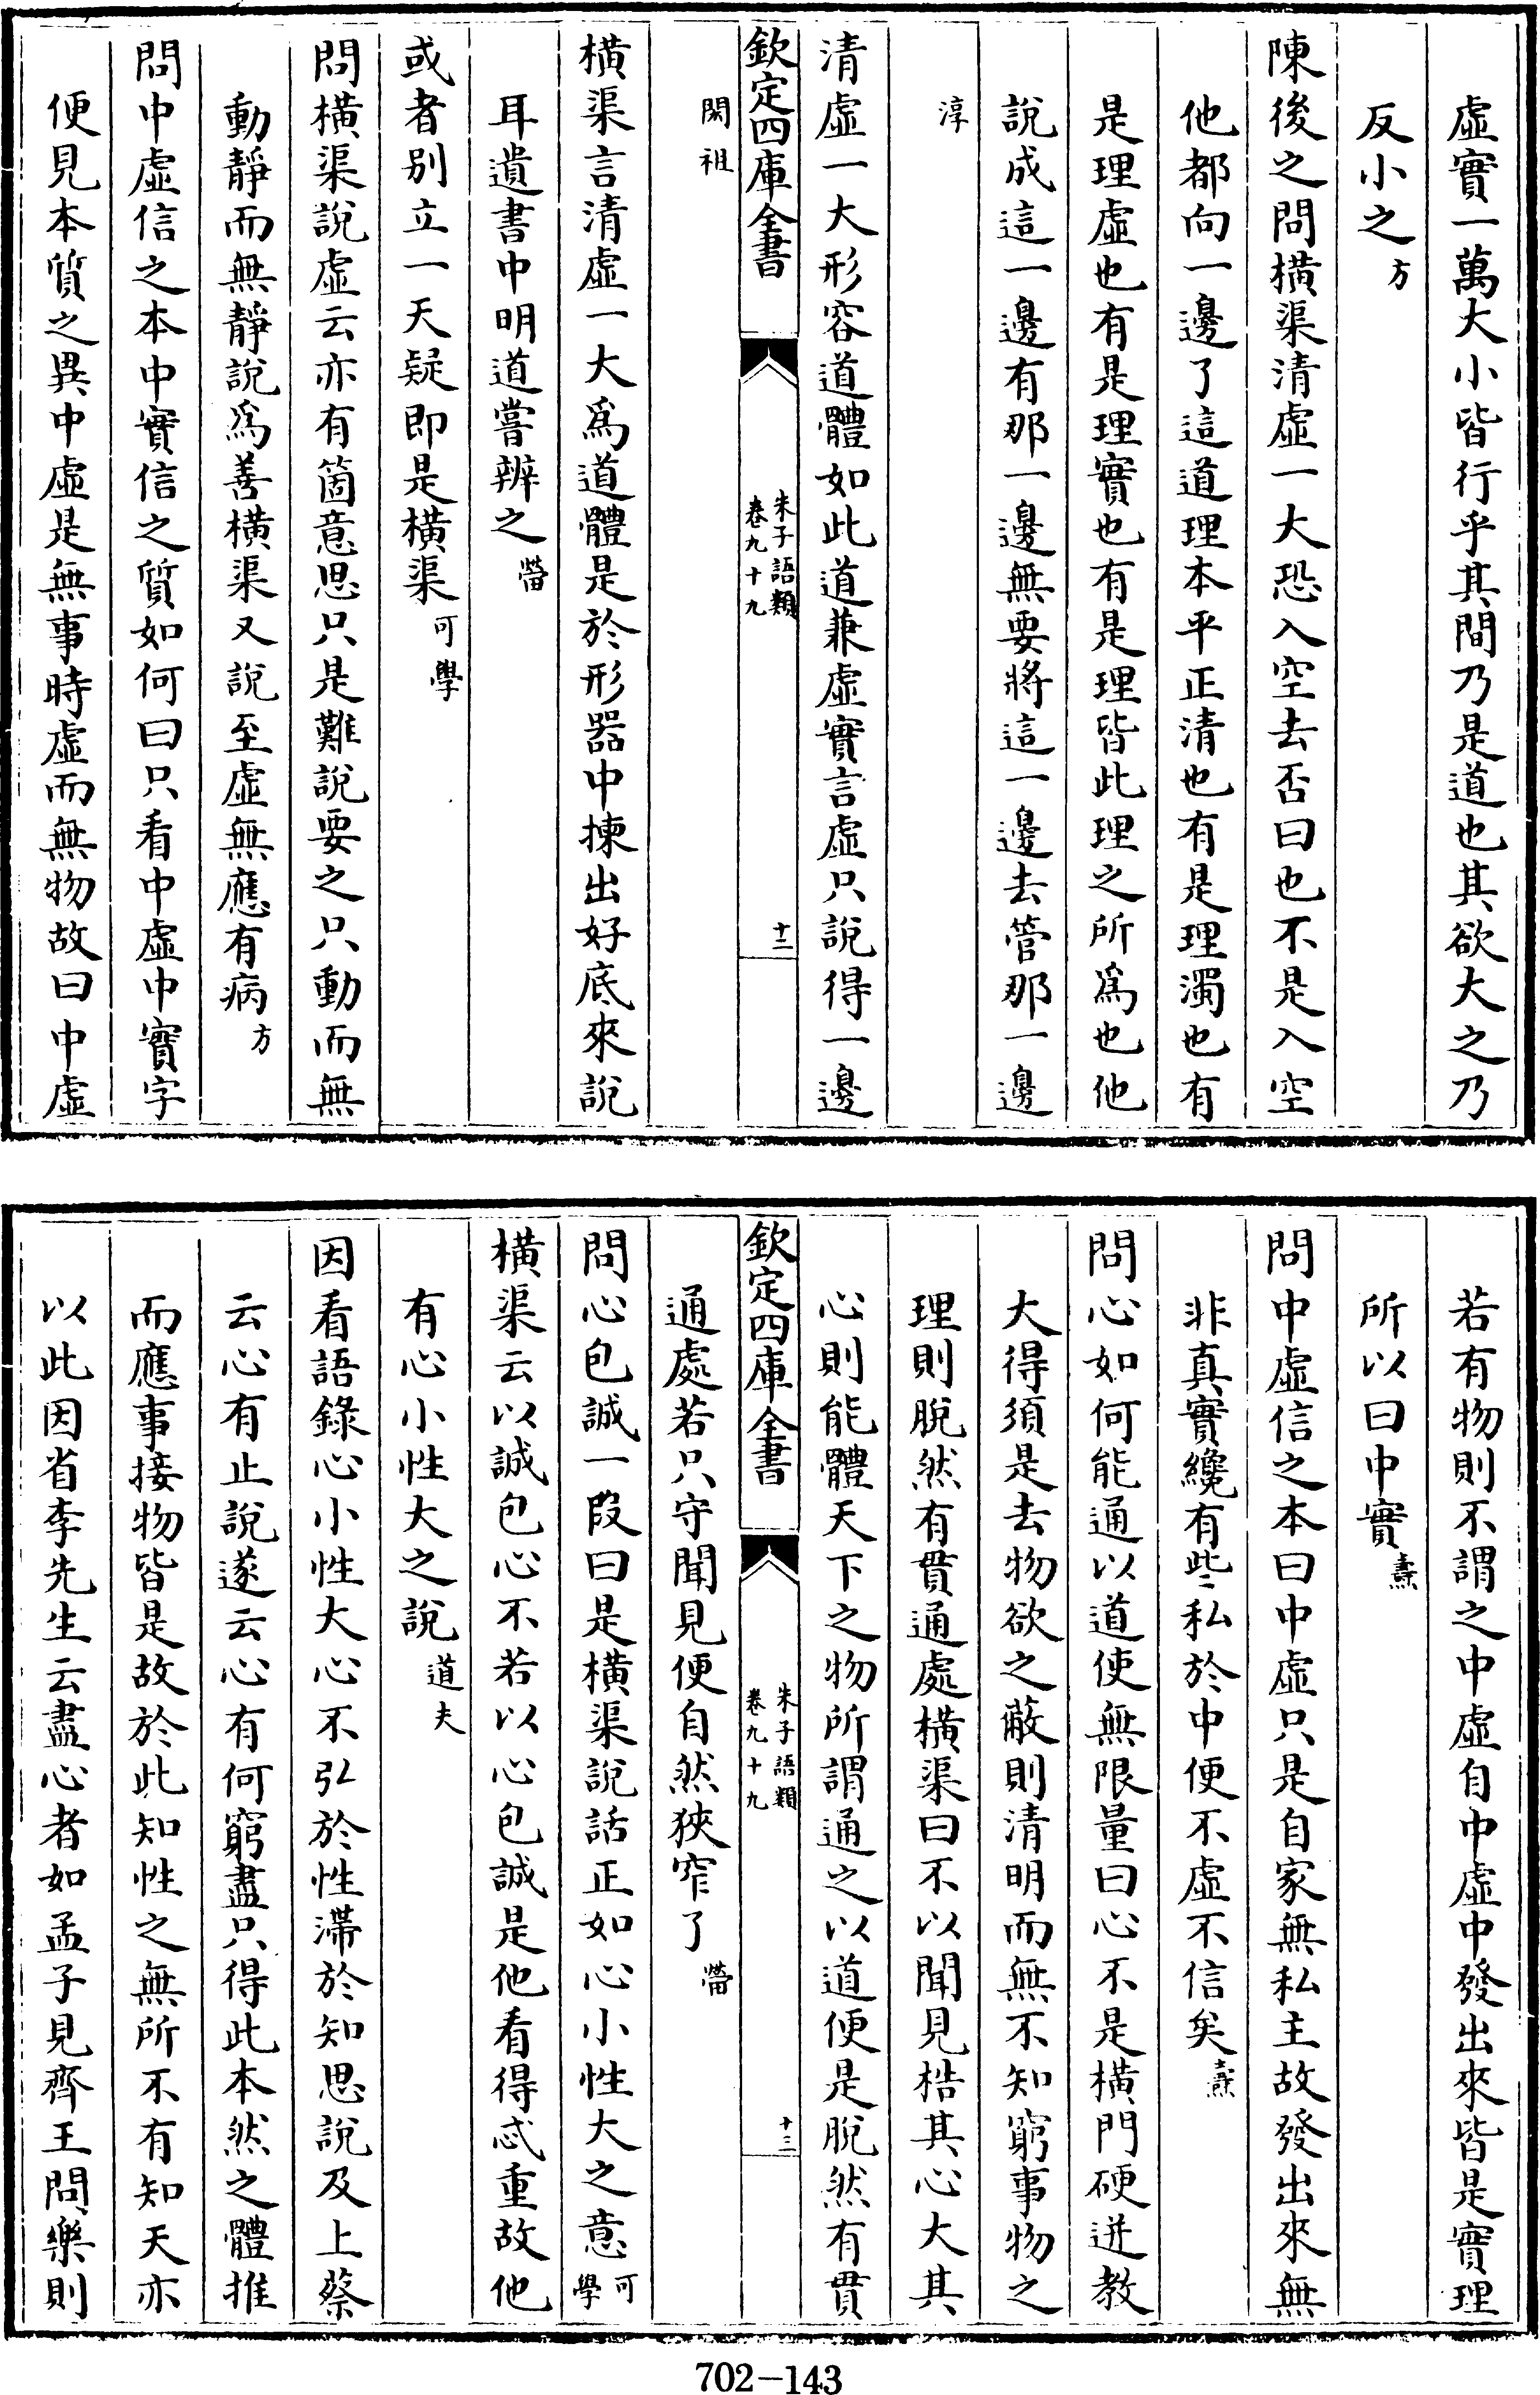 虛實一萬大小皆行乎其間乃是道也其欲大之乃
反小之方
陳後之問橫渠清虛一大恐入空去否曰也不是入空
他都向一邊了這道理本平正清也有是理濁也有
是理虛也有是理實也有是理皆此理之所爲也他
說成這一邊有那一邊無要將這一邊去管那一邊
淳
清虛一大形容道體如此道兼虛實言虛只說得一邊
欽定四庫全書
朱子語類
卷九十九
十二
閎祖
橫渠言清虛一大爲道體是於形器中揀出好底來說
耳遺書中明道嘗辨之㽦
或者別立一天疑即是橫渠可學
問橫渠說虛云亦有箇意思只是難說要之只動而無
動靜而無靜說爲善橫渠又說至虛無應有病方
問中虛信之本中實信之質如何曰只看中虛中實字
便見本質之異中虛是無事時虛而無物故曰中虛
若有物則不謂之中虛自中虛中發出來皆是實理
所以曰中實燾
問中虛信之本曰中虛只是自家無私主故發出來無
非真實纔有些私於中便不虛不信矣燾
問心如何能通以道使無限量曰心不是橫門硬迸教
大得須是去物欲之蔽則清明而無不知窮事物之
理則脫然有貫通處橫渠曰不以聞見梏其心大其
心則能體天下之物所謂通之以道便是脫然有貫
欽定四庫全書
朱子語類
卷九十九
十三
通處若只守聞見便自然狹窄了㽦
問心包誠一段曰是橫渠說話正如心小性大之意可學
橫渠云以誠包心不若以心包誠是他看得忒重故他
有心小性大之說道夫
因看語錄心小性大心不弘於性滯於知思說及上蔡
云心有止說遂云心有何窮盡只得此本然之體推
而應事接物皆是故於此知性之無所不有知天亦
以此因省李先生云盡心者如孟子見齊王問樂則
702-143